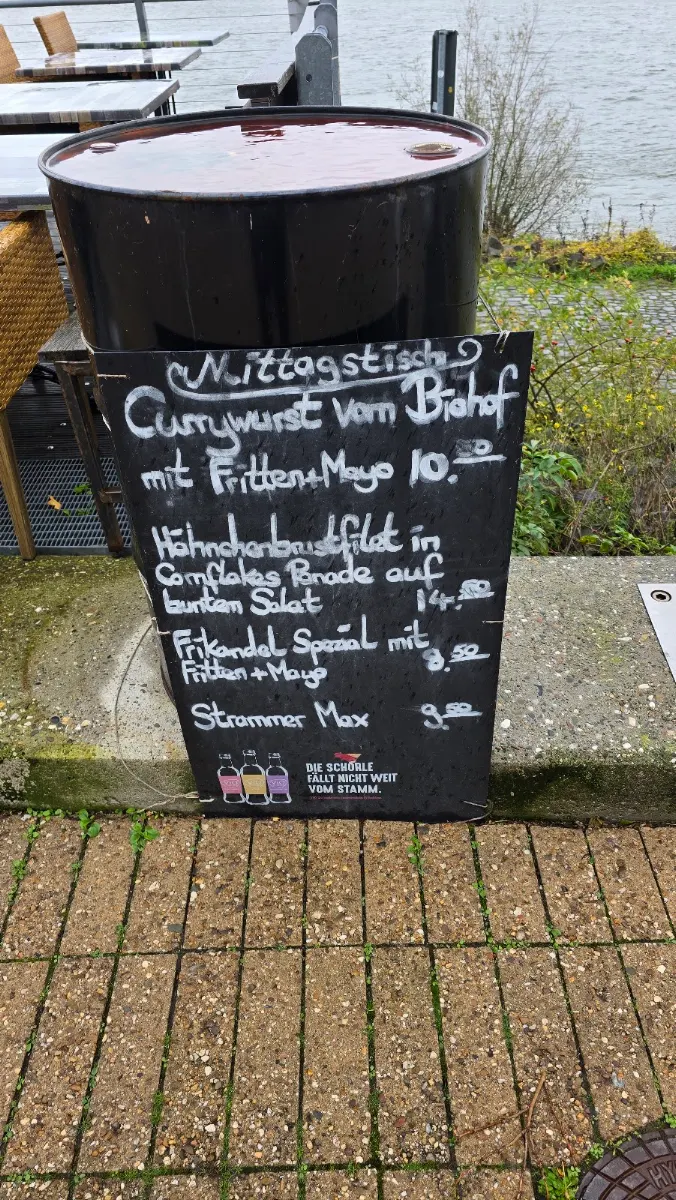 Mittagstisch
Currywurst vom Biohof
mit Fritten+Mayo 10.50
Hähnchenbrustfilet in
Cornflakes Panade auf
buntem Salat 14.50
Frikandel Spezial mit 8.50
Fritten+Mayo
Strammer Max 9.50
DIE SCHORLE
FÄLLT NICHT WEIT
VOM STAMM.
HY